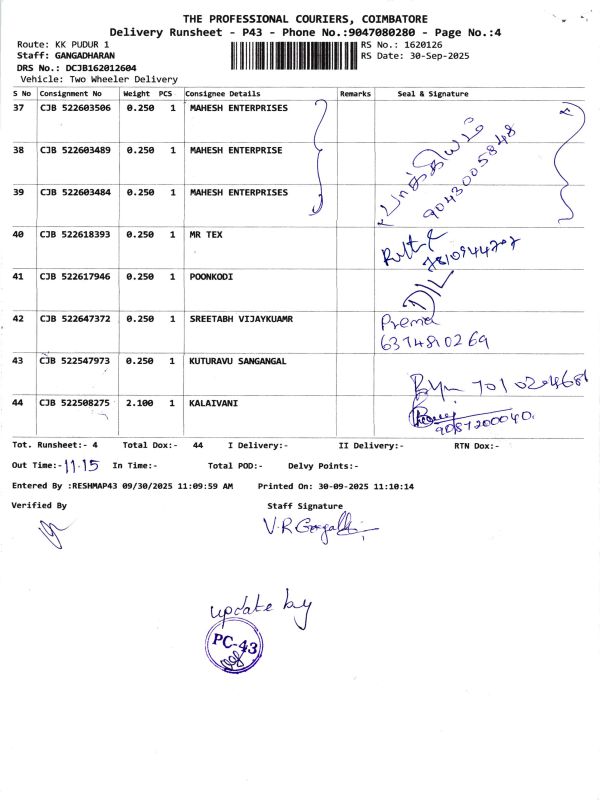 THE PROFESSIONAL COURIERS, COIMBATORE
Delivery Runsheet - P43 - Phone No.:9047080280 - Page No.:4
Route: KK PUDUR 1 RS No.: 1620126
Staff: GANGADHARAN RS Date: 30-Sep-2025
DRS No.: DCJB162012604
Vehicle: Two Wheeler Delivery
S No Consignment No Weight PCS Consignee Details Remarks Seal & Signature
37 CJB 522603506 0.250 1 MAHESH ENTERPRISES
38 CJB 522603489 0.250 1 MAHESH ENTERPRISE
39 CJB 522603484 0.250 1 MAHESH ENTERPRISES
பாக்கியம்
9043005848
40 CJB 522618393 0.250 1 MR TEX
41 CJB 522617946 0.250 1 POONKODI
D/L
42 CJB 522647372 0.250 1 SREETABH VIJAYKUAMR Prema
6374810269
43 CJB 522547973 0.250 1 KUTURAVU SANGANGAL
44 CJB 522508275 2.100 1 KALAIVANI
9087200040
Tot. Runsheet:- 4 Total Dox:- 44 I Delivery:- II Delivery:- RTN Dox:-
Out Time:- 11.15 In Time:- Total POD:- Delvy Points:-
Entered By :RESHMAP43 09/30/2025 11:09:59 AM Printed On: 30-09-2025 11:10:14
Verified By Staff Signature
update by
PC-43